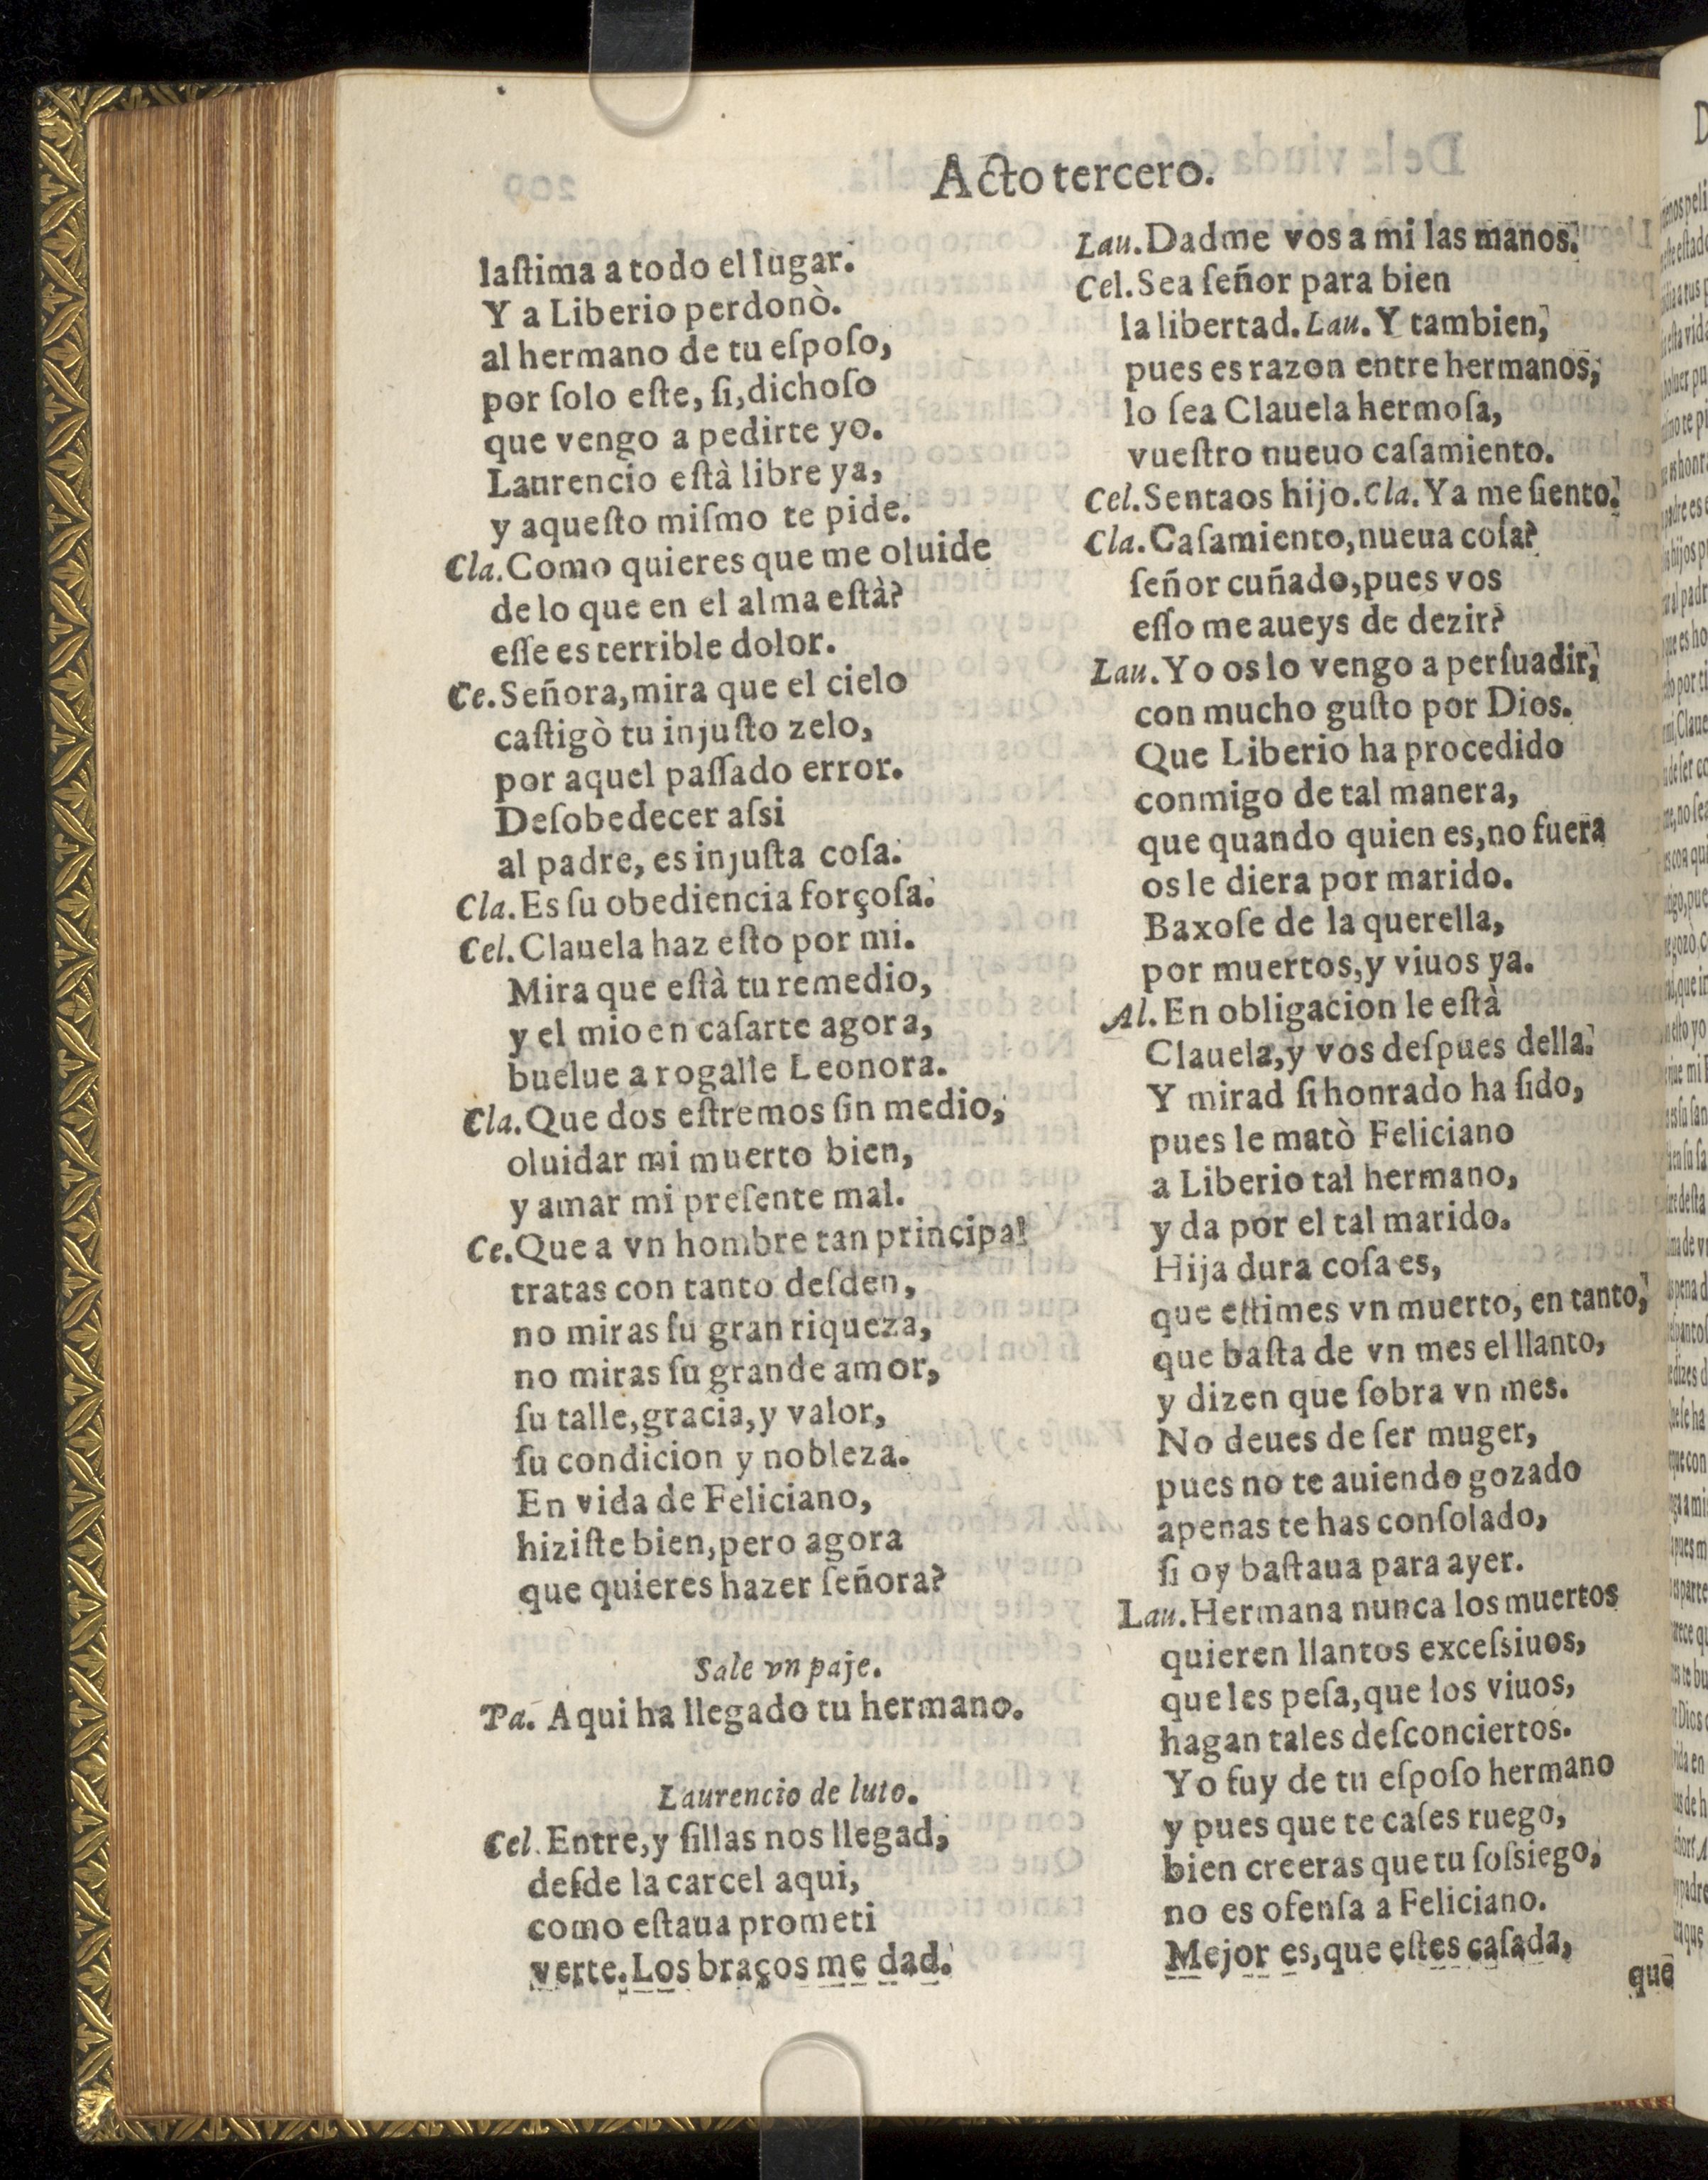 Acto tercero.
laſtima a todo el lugar.
Y a Liberio perdonò.
al hermano de tu eſpoſo,
por ſolo eſte, ſi, dichoſo
que vengo a pedirte yo.
Laurencio eſtà libre ya,
y aqueſto miſmo te pide.
Cla. Como quieres que me oluide
de lo que en el alma eſtà?
eſſe es terrible dolor.
Ce. Señora, mira que el cielo
caſtigò tu injuſto zelo,
por aquel paſſado error.
Deſobedecer aſsi
al padre, es injuſta coſa.
Cla. Es ſu obediencia forçoſa.
Cel. Clauela haz eſto por mi.
Mira que eſtà tu remedio,
y el mio en caſarte agora,
buelue a rogalle Leonora.
Cla. Que dos eſtremos ſin medio,
oluidar mi muerto bien,
y amar mi preſente mal.
Ce. Que a vn hombre tan principal
tratas con tanto deſden,
no miras ſu gran riqueza,
no miras ſu grande amor,
ſu talle, gracia, y valor,
ſu condicion y nobleza.
En vida de Feliciano,
hiziſte bien, pero agora
que quieres hazer ſeñora?
Sale vn paje.
Pa. Aqui ha llegado tu hermano.
Laurencio de luto.
Cel. Entre, y ſillas nos llegad,
deſde la carcel aqui,
como eſtaua prometi
verte. Los braços me dad.
Lau. Dadme vos a mi las manos.
Cel. Sea ſeñor para bien
la libertad. Lau. Y tambien,
pues es razon entre hermanos,
lo ſea Clauela hermoſa,
vueſtro nueuo caſamiento.
Cel. Sentaos hijo. Cla. Ya me ſiento.
Cla. Caſamiento, nueua coſa?
ſeñor cuñado, pues vos
eſſo me aueys de dezir?
Lau. Yo os lo vengo a perſuadir,
con mucho guſto por Dios.
Que Liberio ha procedido
conmigo de tal manera,
que quando quien es, no fuera
os le diera por marido.
Baxoſe de la querella,
por muertos, y viuos ya.
Al. En obligacion le eſtà
Clauela, y vos deſpues della.
Y mirad ſi honrado ha ſido,
pues le matò Feliciano
a Liberio tal hermano,
y da por el tal marido.
Hija dura coſa es,
que eſtimes vn muerto, en tanto,
que baſta de vn mes el llanto,
y dizen que ſobra vn mes.
No deues de ſer muger,
pues no te auiendo gozado
apenas te has conſolado,
ſi oy baſtaua para ayer.
Lau. Hermana nunca los muertos
quieren llantos exceſsiuos,
que les peſa, que los viuos,
hagan tales deſconciertos.
Yo fuy de tu eſpoſo hermano
y pues que te caſes ruego,
bien creeras que tu ſoſsiego,
no es ofenſa a Feliciano.
Mejor es, que eſtes caſada,
que